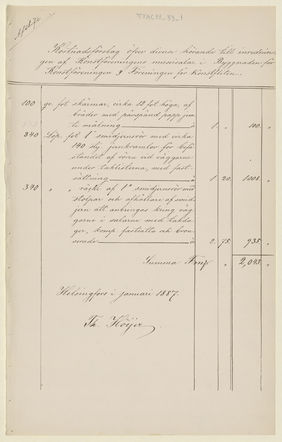 Kostnadsförslag öfver diverse hörande till inredningen
gen af Konstföreningens musei salar i Byggnaden för
Konstföreningen & Föreningen för Konstflit.
100 qv. fot skärmar, cirka 12 fot höga, af
bräder med påspänd papp jem
te målning 1 „ 100. „
840 Löp. fot 1" smidjernsrör med cirka
140 st. jernkramlor för
af rören vid väggarne
under taklisterna, med fast
sättning 1 20. 1008. „
340 „ „ räcke af 1" smidjernsrör med
stolpar och af smid
jern att anbringas kring väg
garne i salarne med
komp. fastsatta och bron
serade 2 75. 935. „
Summa Fmk 2,043. „
Helsingfors i januari 1887.
Th. Höijer